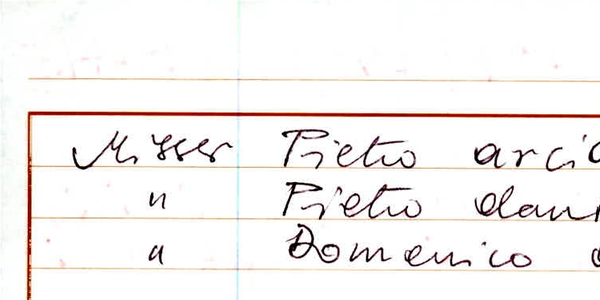 Misser Pietro arci
" Pietro dan
" Domenico